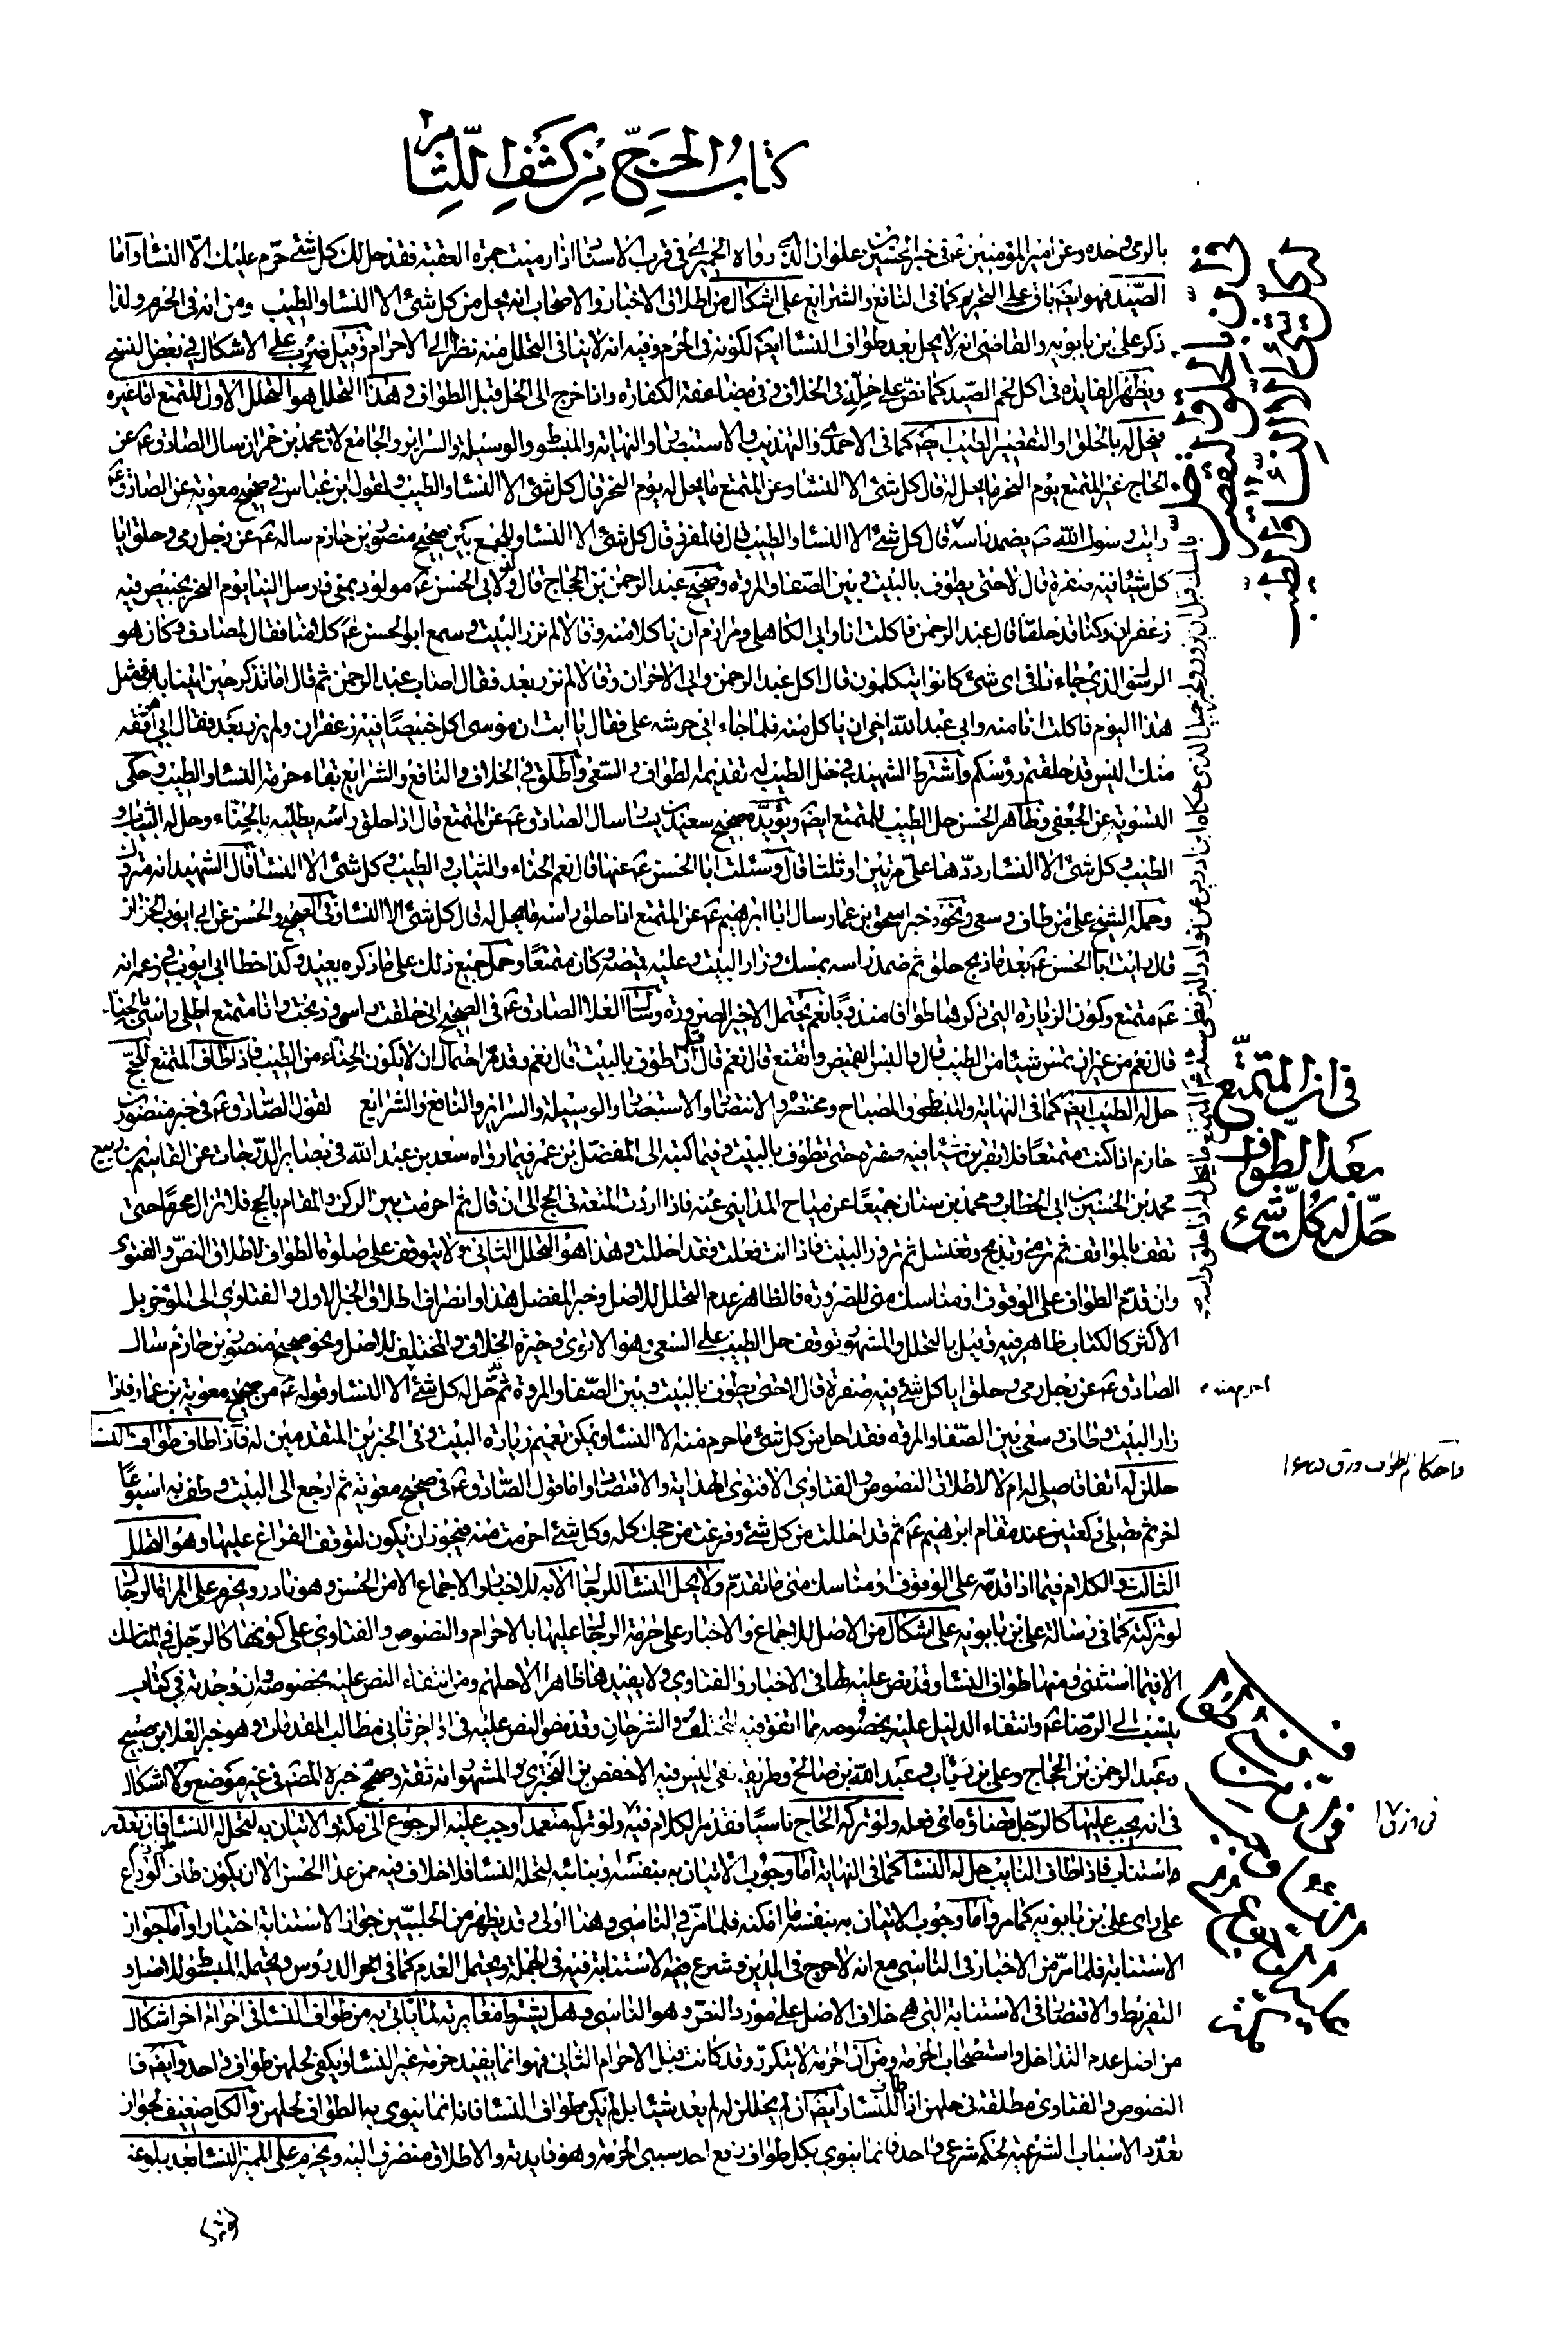 كتاب الحج من كشف اللثام
بالرمى وحده وعن امير المؤمنين ع فى خبر الحسين بن علوان الذى رواه الحميرى فى قرب الاسناد اذا رميت جمرة العقبة فقد حل لك كل شئ حرم عليك الا النساء واما
الصيد فهو ايضا باق على التحريم كما فى النافع والشرايع على اشكال من اطلاق الاخبار والاصحاب انه يحل من كل شئ الا النساء والطيب ومن انه فى الحرم ولذا
ذكر على بن بابويه والقاضى انه لا يحل بعد طواف النساء ايضا لكونه فى الحرم وفيه انه لا ينافى التحلل منه نظرا الى الاحرام وقيل ضرب على الاشكال فى بعض النسخ
ويظهر الفايدة فى اكل لحم الصيد كما نص على حله فى الخلاف وفى مضاعفة الكفارة واذا خرج الى الحل قبل الطواف وهذا التحلل هو التحلل الاول للمتمتع اما غيره
فيحل له بالحلق او التقصير الطيب ايضا كما فى الاحمدى والتهذيب والاستبصار والنهاية والمبسوط والوسيلة والسرائر والجامع لان محمد بن حمران سال الصادق ع عن
الحاج غير المتمتع يوم النحر ما يحل له قال كل شئ الا النساء وعن المتمتع ما يحل له يوم النحر قال كل شئ الا النساء والطيب ولقول ابن عباس فى صحيح معوية عن الصادق ع
رايت رسول الله ص يضمد راسه قال كل شئ الا النساء والطيب قال فالمفرد قال كل شئ الا النساء والجمع بين صحيح منصور بن حازم ساله ع عن رجل رمى وحلق ايا
كل شيئا فيه صفرة قال لا حتى يطوف بالبيت وبين الصفا والمروة وصحيح عبد الرحمن بن الحجاج قال ولد لابى الحسن ع مولود بمنى فارسل الينا يوم النحر بخبيص فيه
زعفران وكنا قد حلقنا قال عبد الرحمن فاكلت انا وابى الكاهلى ومرازم ان ياكلا منه وقالا لم نزر البيت وسمع ابو الحسن ع كلامنا فقال لمصادف وكان هو
الرسول الذى جاءنا فى اى شئ كانوا يتكلمون قال اكل عبد الرحمن وابى الاخران وقالا لم نزر بعد فقال اصاب عبد الرحمن ثم قال اما تذكر حين اتينا به فى مثل
هذا اليوم فاكلت انا منه وابى عبد الله اخى ان ياكل منه فلما جاء ابى حرشه على فقال يا ابت ان موسى اكل خبيصا فيه زعفران ولم يزر بعد فقال ابى هو افقه
منك اليس قد حلقتم رؤسكم واشترط الشهيد فى حل الطيب له تقديمه لطواف والسعى واطلق فى الخلاف والنافع والشرايع بقاء حرمة النساء والطيب وحكى
التسوية عن الجعفى وظاهر الحسن حل الطيب للمتمتع ايضا ويؤيده صحيح سعيد بن يسار سال الصادق ع عن المتمتع قال اذا حلق راسه يطليه بالحناء وحل له الثياب و
الطيب وكل شئ الا النساء رددها على مرتين او ثلثا قال وسئلت ابا الحسن ع عنها قال نعم الحناء والثياب والطيب وكل شئ الا النساء قال الشهيد انه متروك
وحمله الشيخ على من طاف وسعى ونحوه خبر اسحق بن عمار سال ابا ابرهيم ع عن المتمتع اذا حلق راسه ما يحل له قال كل شئ الا النساء وفى الصحيح والحسن عن ابى ايوب الخزاز
قال رايت ابا الحسن ع بعد ما ذبح حلق ثم ضمد راسه بمسك وزار البيت وعليه قميصه وكان متمتعا وحمل جميع ذلك على ما ذكره بعيد وكذا خطا ابى ايوب فى زعمه انه
ع متمتع وكون الزيارة التى ذكرها طواف مندوبا نعم يحتمل الاخير الضرورة وسال العلا الصادق ع فى الصحيح انى حلقت راسى وذبحت وانا متمتع اطلى راسى بالحناء
قال نعم من غير ان تمس شيئا من الطيب قال والبس القميص واتقنع قال نعم قال قبل ان اطوف بالبيت قال نعم وقد مر احتمال ان لا يكون الحناء من الطيب فاذا طاف المتمتع للحج
حل له الطيب ايضا كما فى النهاية والمبسوط والمصباح ومختصره والانتصار والاستبصار والوسيلة والسرائر والنافع والشرايع لقول الصادق ع فى خبر منصور بن
حازم اذا كنت متمتعا فلا تقربن شيئا فيه صفرة حتى تطوف بالبيت وفيما كتبه الى المفضل بن عمر فيما رواه سعد بن عبد الله فى بصاير الدرجات عن القاسم بن ربيع
محمد بن الحسين بن ابى الخطاب ومحمد بن سنان جميعا عن مياح المداينى عنه فاذا اردت المتعة فى الحج الى ان قال ثم احرمت بين الركن والمقام بالحج فلا تزال محرما حتى
تقف بالمواقف ثم ترمى وتذبح وتغتسل ثم تزور البيت فاذا انت فعلت فقد احللت وهذا هو التحلل الثانى ولا يتوقف على صلوة الطواف لاطلاق النص والفتوى
وان قدم الطواف على الوقوف او مناسك منى للضرورة فالظاهر عدم التحلل للاصل وخبر المفضل هذا وانصراف اطلاق الخبر الاول والفتاوى الى المؤخر بل
الاكثر كالكتاب ظاهر فيه وقيل بالتحلل والمشهور توقف حل الطيب على السعى وهو الاقوى وخيرة الخلاف والمختلف للاصل ونحو صحيح منصور بن حازم سال
الصادق ع عن رجل رمى وحلق ايا كل شئ فيه صفرة قال لا حتى يطوف بالبيت وبين الصفا والمروة ثم قد حل له كل شئ الا النساء وقوله ع من صحيح معوية بن عمار فاذا
زار البيت وطاف وسعى بين الصفا والمروة فقد احل من كل شئ ما حرم منه الا النساء ويمكن تعميم زيارة البيت وفى الخبرين المتقدمين له فاذا طاف طواف النساء
حللن له اتفاقا صلى له ام لا لاطلاق النصوص والفتاوى الا فتوى الهداية والاقتصار واما قول الصادق ع فى صحيح معوية ثم ارجع الى البيت وطف به اسبوعا
اخر ثم تصلى ركعتين عند مقام ابرهيم ع ثم قد احللت من كل شئ وفرغت من حجك كله وكل شئ احرمت منه فيجوز ان يكون لتوقف الفراغ عليها وهو التحلل
الثالث والكلام فيما اذا قدمه على الوقوف او مناسك منى ما تقدم ولا يحل النساء للرجال الا به للاخبار والاجماع الا من الحسن وهو نادر ويحرم على المراة الرجال
لو تركته كما فى رسالة على بن بابويه على اشكال من الاصل للاجماع والاخبار على حرمة الرجال عليها بالاحرام والنصوص والفتاوى على كونها كالرجل فى المناسك
الا فيما استثنى ومنها طواف النساء وقد نص عليه لها فى الاخبار والفتاوى ولا يفيدها ظاهرا الا حلهم ومن انتفاء النص عليه بخصوصه وان وجدته فى كتاب
ينسب الى الرضا ع وانتفاء الدليل عليه بخصوصه مما اتفق فيه المختلف والشرحان وقد مضى النص عليه فى اواخر ثانى مطالب المقدمات وهو خبر العلا بن صبيح
وعبد الرحمن بن الحجاج وعلى بن رئاب وعبد الله بن صالح وطريقه نقى ليس فيه الا حفص بن البخترى والمشهور انه ثقة وصحح خبره المصنف فى غير موضع ولا اشكال
فى انه يجب عليها كالرجل قضاؤه ماى فعله ولو تركه الحاج ناسيا فقد مر الكلام فيه ولو تركه متعمدا وجب عليه الرجوع الى مكة والاتيان به لتحل له النساء فان تعذر
استناب فاذا طاف النايب حل له النساء كما فى النهاية اما وجوب الاتيان به بنفسه او بنائبه لتحل له النساء فلا خلاف فيه ممن عدا الحسن الا ان يكون طاف للوداع
على راى على بن بابويه كما مر واما وجوب الاتيان به بنفسه ما امكنه فلما مر فى الناسى وهنا اولى وقد يظهر من الحلبيين جواز الاستنابة اختيارا واما جواز
الاستنابة فلما مر من الاخبار فى الناسى مع انه لا حرج فى الدين وشرع الاستنابة فيه فى الجملة ويحتمل العدم كما فى الدروس ويحتمله المبسوط للاصل و
التفريط والاقتصار فى الاستنابة التى هى خلاف الاصل على مورد النص وهو الناسى وهل يشترط مغايرته لما ياتى به من طواف النساء فى احرام اخر اشكال
من اصل عدم التداخل واستصحاب الحرمة ومن ان الحرمة لا يتكرر وقد كانت قبل الاحرام الثانى فهو انما يفيد حرمة غير النساء ويكفى لحلهن طواف واحد وايضا فا
النصوص والفتاوى مطلقة فى حلهن اذا طاف للنساء وايضا ان لم يحللن له لم يعد شيئا بل لم يكن طواف النساء فانه انما ينوى به الطواف لحلهن والكل ضعيف لجواز
تعدد الاسباب الشرعية لحكم شرعى واحد فانما ينوى بكل طواف رفع احد سببى الحرمة وهو فايدته والاطلاق منصرف اليه ويحرم على المميز النساء بعد بلوغه
فى ان المتمتع
بعد الطواف
حل له كل شئ